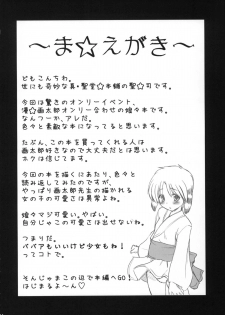 ～ま☆えがき～
ども こんちわ。
世にも奇妙な真・聖堂☆本舗の聖☆司です。
今回は驚きのオンリーイベント、
漫☆画太郎先生の描かれる娘々本です。
なんつーか、アレだ。
色々と素敵な本になってると思います。
たぶん、この本を買ってくれる人は
画太郎好きなので大丈夫だとは思います。
ボクは信じてます。
今回の本を描くにあたり、色々と
読み返してみたのですが、
やっぱり画太郎先生の描かれる
女の子の可愛さは異常よね。
娘々マジ可愛い。やばい。
自分じゃこの可愛さは出せないね。
つまりだ。
ババアもいいけど少女もね！
ってコトで。
そんじゃまこの辺で本編へGO！
はじまるよ～ん♡